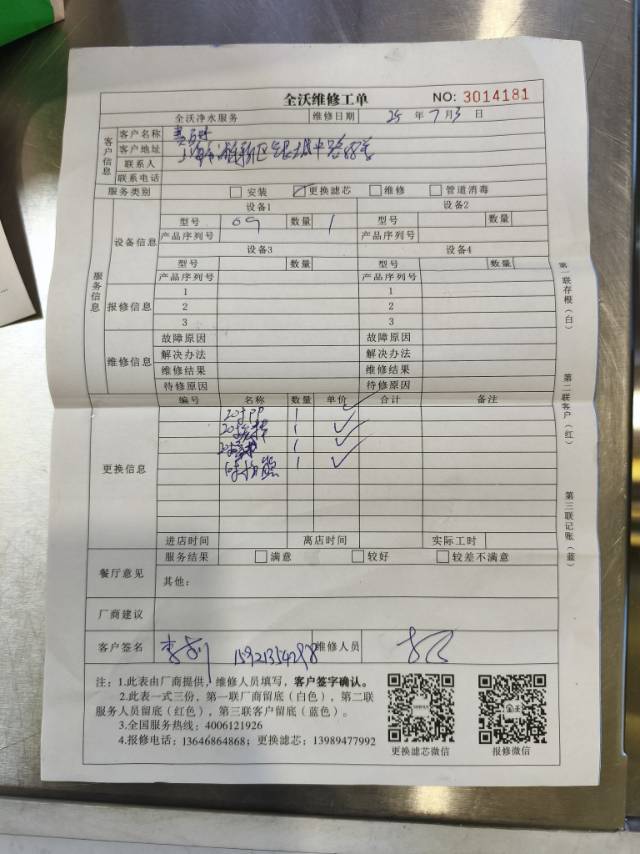 全沃维修工单 NO: 3014181
全沃净水服务 维修日期 25 年 7 月 3 日
客户信息
客户名称
客户地址 上海市
联系人
联系电话
服务类别 安装 更换滤芯 维修 管道消毒
服务信息
设备信息
设备1 设备2
型号 09 数量 1 型号 数量
产品序列号 产品序列号
设备3 设备4
型号 数量 型号 数量
产品序列号 产品序列号
报修信息
1 1
2 2
3 3
维修信息
故障原因 故障原因
解决办法 解决办法
维修结果 维修结果
待修原因 待修原因
更换信息
编号 名称 数量 单价 合计 备注
20寸PP 1
20寸 1
20寸 1
1
进店时间 离店时间 实际工时
餐厅意见
服务结果 满意 较好 较差不满意
其他:
厂商建议
客户签名 15921354298 维修人员
注：1.此表由厂商提供，维修人员填写，客户签字确认。
2.此表一式三份，第一联厂商留底（白色），第二联
服务人员留底（红色），第三联客户留底（蓝色）。
3.全国服务热线：4006121926
4.报修电话：13646864868；更换滤芯：13989477992
更换滤芯微信 报修微信
第一联存根（白）
第二联客户（红）
第三联记账（蓝）